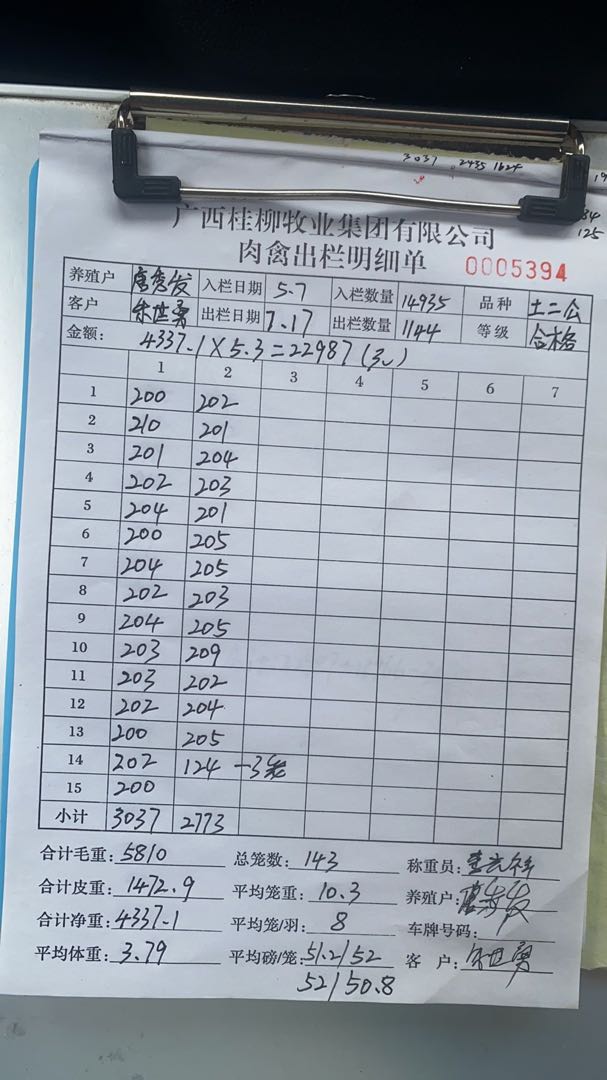 3037 2435 1624
广西桂柳牧业集团有限公司
肉禽出栏明细单 0005394
养殖户 入栏日期 5.7 入栏数量 14935 品种 土二公
客户 出栏日期 7.17 出栏数量 1144 等级 合格
金额: 4337.1×5.3=22987(元)
1 2 3 4 5 6 7
1 200 202
2 210 201
3 201 204
4 202 203
5 204 201
6 200 205
7 204 205
8 202 203
9 204 205
10 203 209
11 203 202
12 202 204
13 200 205
14 202 124 -3笼
15 200
小计 3037 2773
合计毛重: 5810 总笼数: 143 称重员:
合计皮重: 1472.9 平均笼重: 10.3 养殖户:
合计净重: 4337.1 平均笼/羽: 8 车牌号码:
平均体重: 3.79 平均磅/笼: 51.2/52 客户:
52/50.8